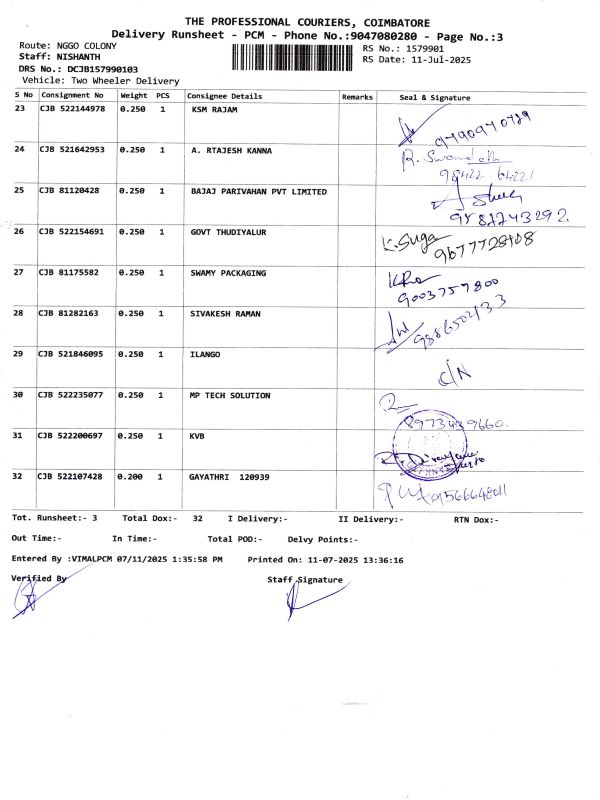 THE PROFESSIONAL COURIERS, COIMBATORE
Delivery Runsheet - PCM - Phone No.:9047080280 - Page No.:3
Route: NGGO COLONY
RS No.: 1579901
Staff: NISHANTH
RS Date: 11-Jul-2025
DRS No.: DCJB157990103
Vehicle: Two Wheeler Delivery
S No Consignment No Weight PCS Consignee Details Remarks Seal & Signature
23 CJB 522144978 0.250 1 KSM RAJAM
9790970789
24 CJB 521642953 0.250 1 A. RTAJESH KANNA
98422 64221
25 CJB 81120428 0.250 1 BAJAJ PARIVAHAN PVT LIMITED
26 CJB 522154691 0.250 1 GOVT THUDIYALUR K.Suga
27 CJB 81175582 0.250 1 SWAMY PACKAGING
9003757800
28 CJB 81282163 0.250 1 SIVAKESH RAMAN
29 CJB 521846095 0.250 1 ILANGO
C/N
30 CJB 522235077 0.250 1 MP TECH SOLUTION
8973439660.
31 CJB 522200697 0.250 1 KVB
32 CJB 522107428 0.200 1 GAYATHRI 120939
Tot. Runsheet:- 3 Total Dox:- 32 I Delivery:- II Delivery:- RTN Dox:-
Out Time:- In Time:- Total POD:- Delvy Points:-
Entered By :VIMALPCM 07/11/2025 1:35:58 PM Printed On: 11-07-2025 13:36:16
Verified By Staff Signature